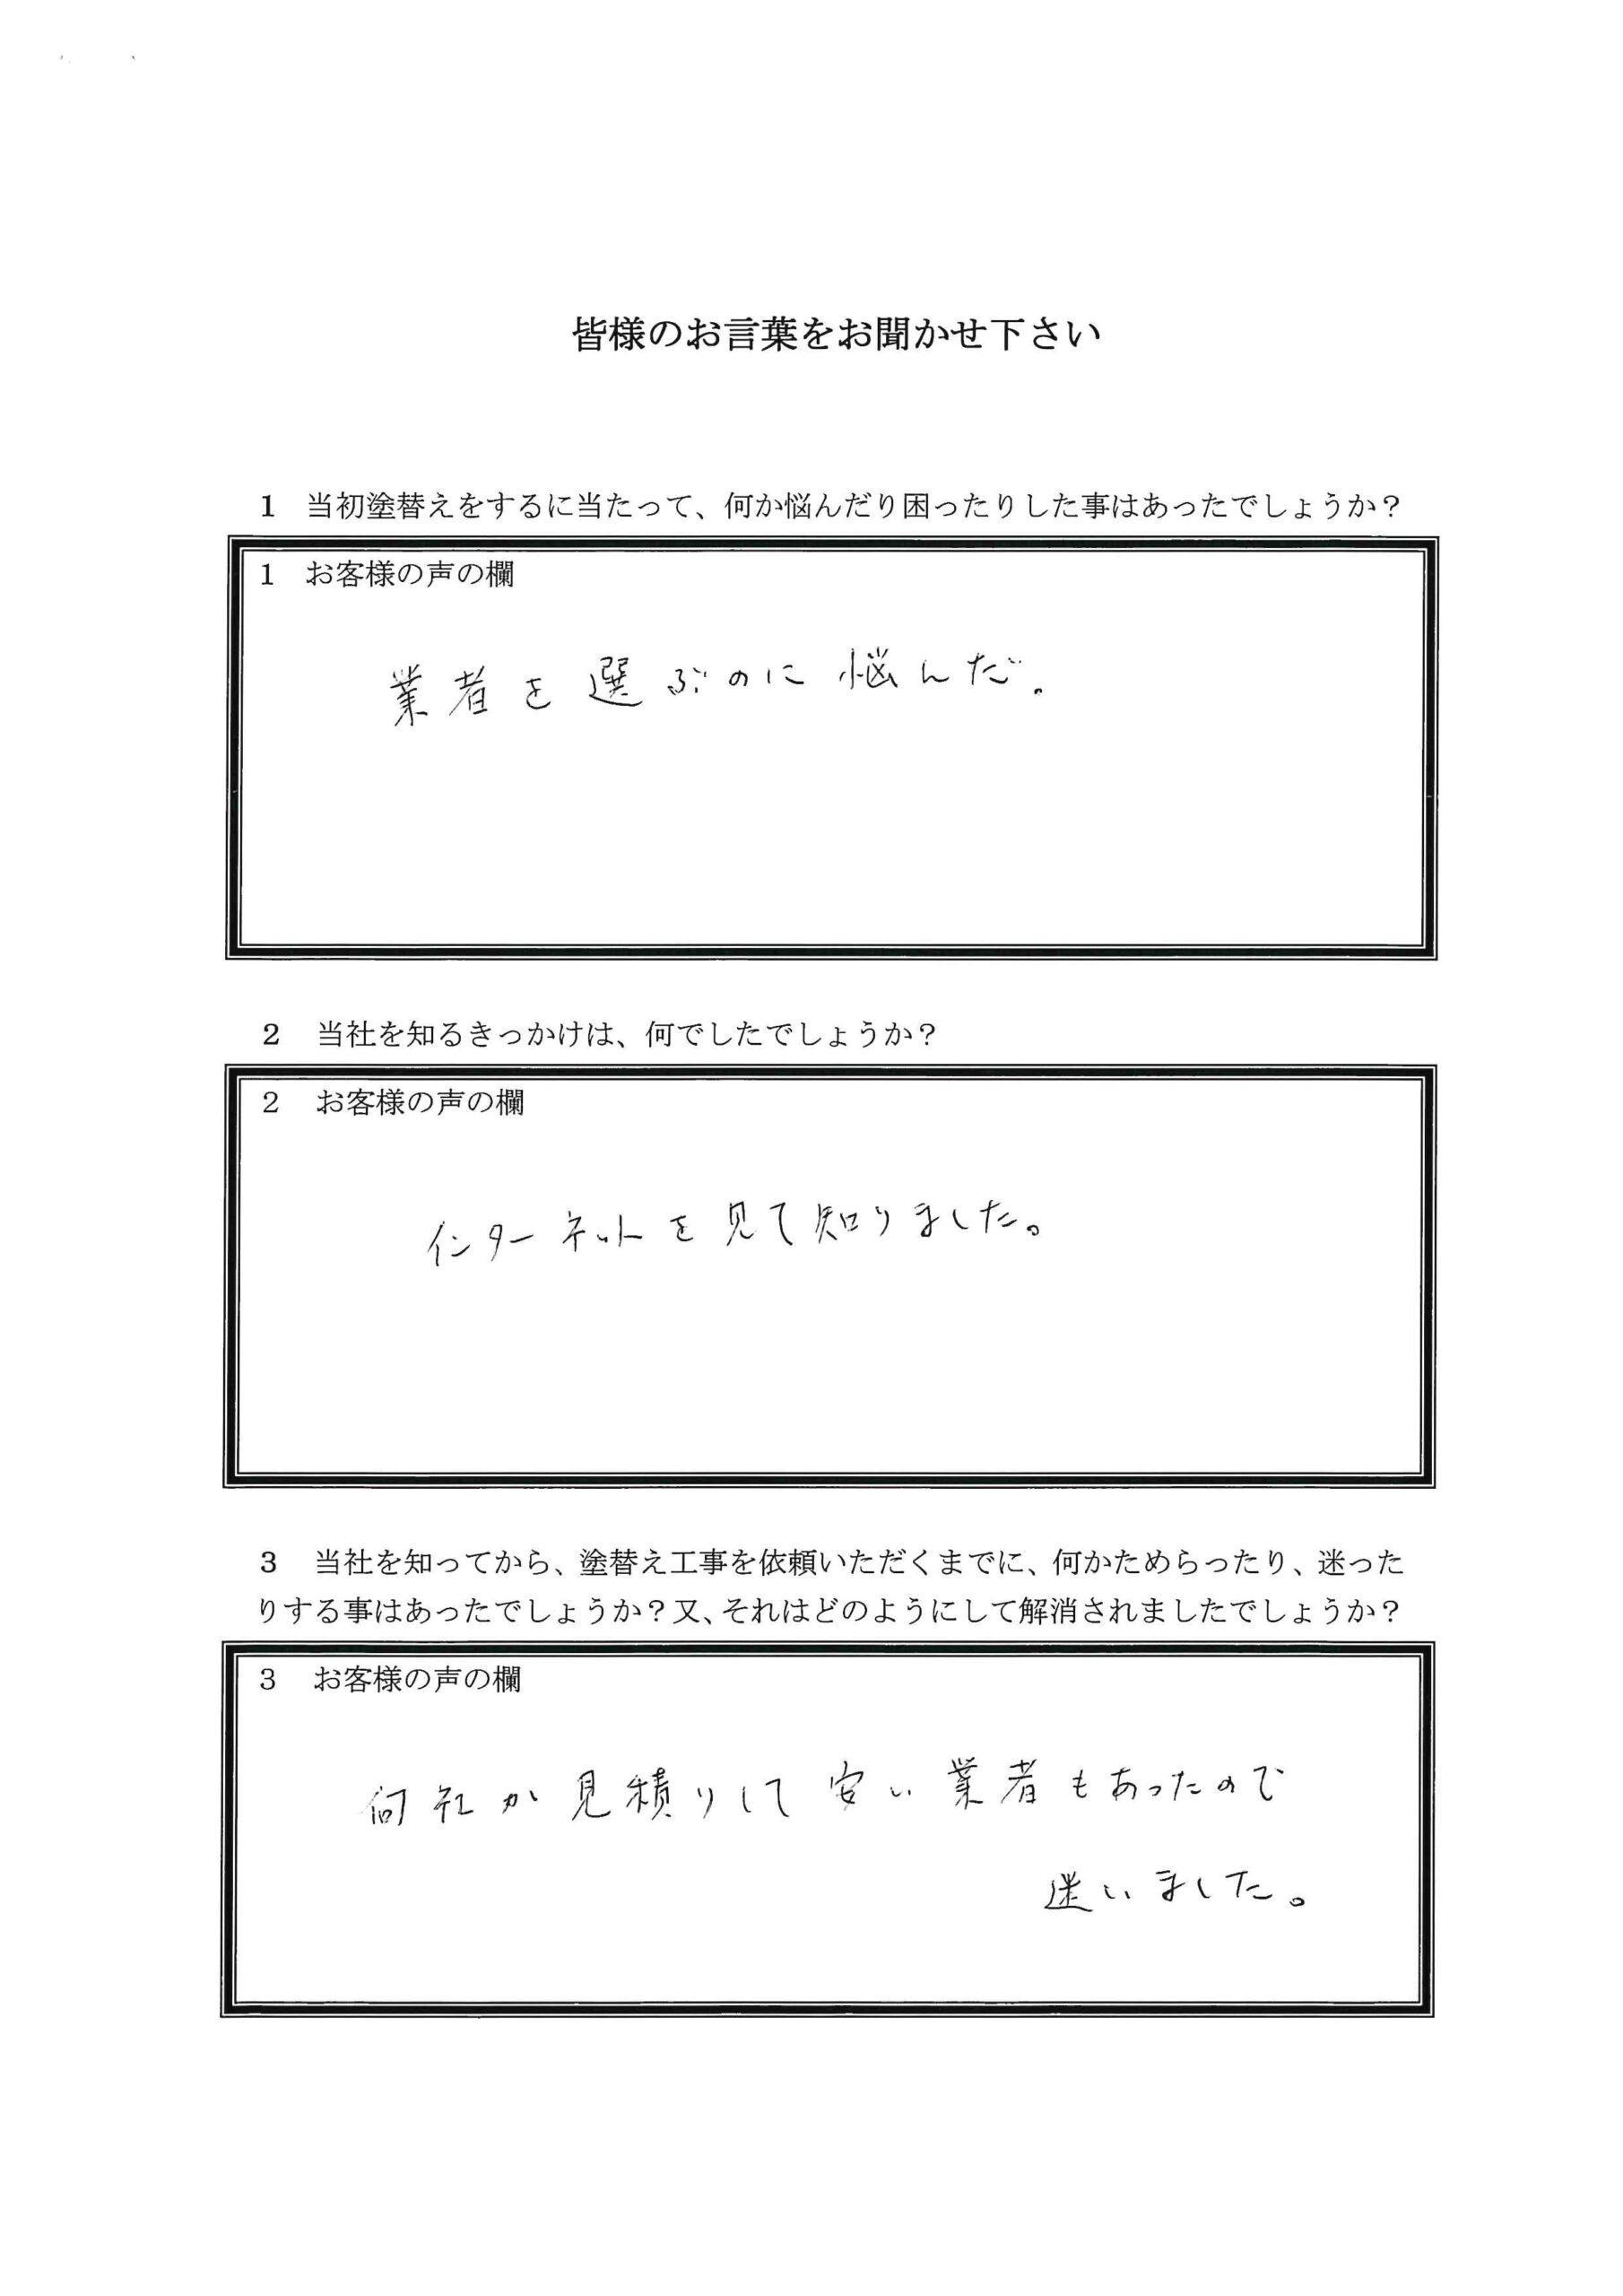 皆様のお言葉をお聞かせ下さい
1 当初塗替えをするに当たって、何か悩んだり困ったりした事はあったでしょうか？
1 お客様の声の欄
業者を選ぶのに悩んだ。
2 当社を知るきっかけは、何でしたでしょうか？
2 お客様の声の欄
インターネットを見て知りました。
3 当社を知ってから、塗替え工事を依頼いただくまでに、何かためらったり、迷った
りする事はあったでしょうか？又、それはどのようにして解消されましたでしょうか？
3 お客様の声の欄
何社か見積りして安い業者もあったので
迷いました。